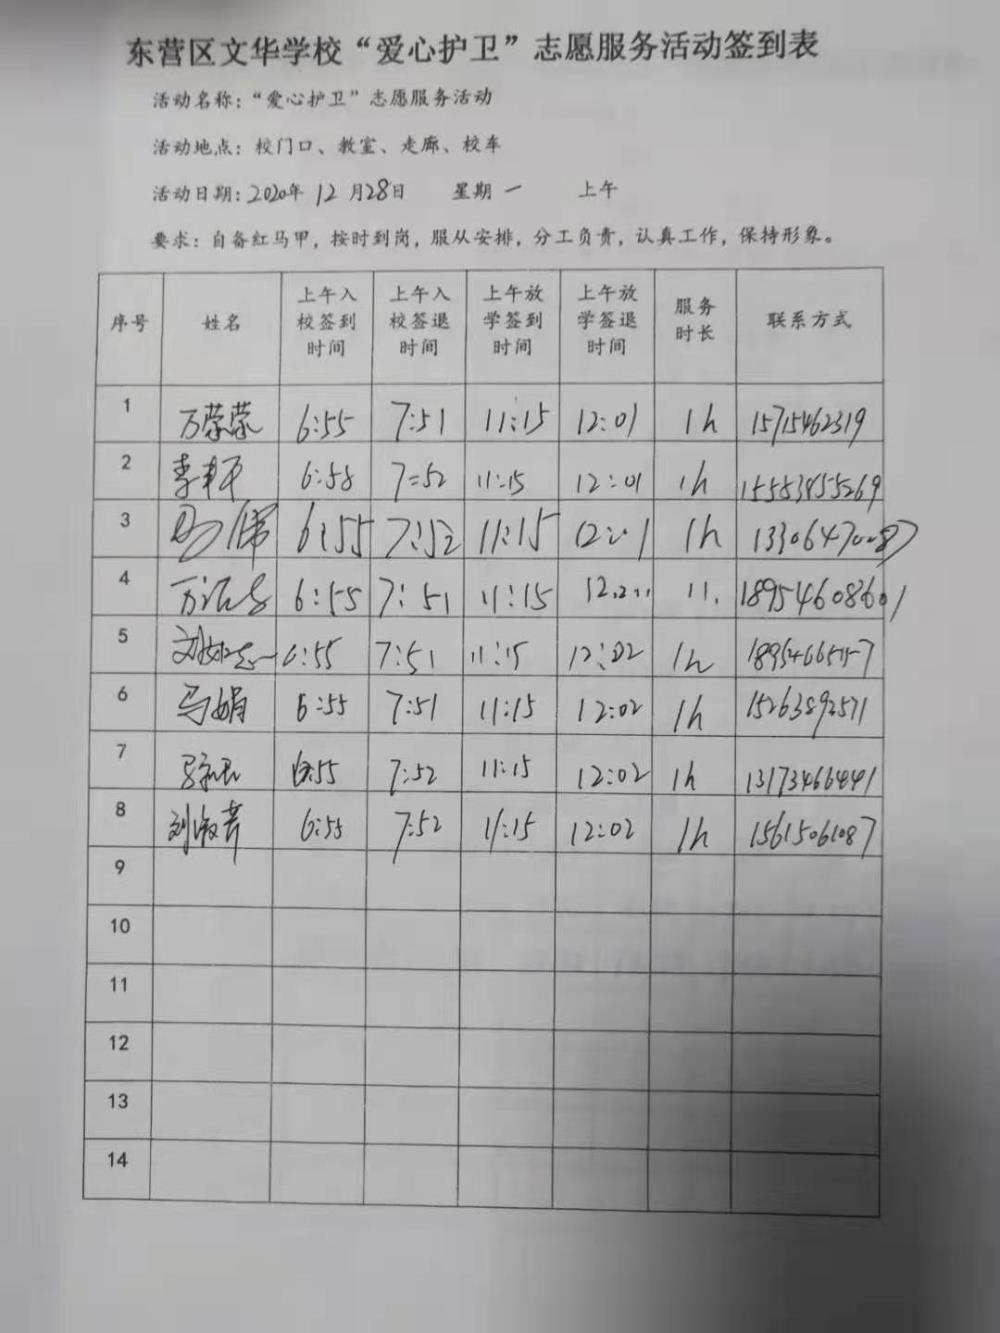 东营区文华学校“爱心护卫”志愿服务活动签到表
活动名称：“爱心护卫”志愿服务活动
活动地点：校门口、教室、走廊、校车
活动日期：2020年 12 月28日 星期 一 上午
要求：自备红马甲，按时到岗，服从安排，分工负责，认真工作，保持形象。
序号 姓名 上午入校签到时间 上午入校签退时间 上午放学签到时间 上午放学签退时间 服务时长 联系方式
1 万荣荣 6:55 7:51 11:15 12:01 1h 15715462319
2 6:58 7:52 11:15 12:01 1h
3 6:55 7:52 11:15 12:01 1h
4 6:55 7:51 11:15
5 6:55 7:51 11:15 12:02 1h
6 马娟 6:55 7:51 11:15 12:02 1h 15263892571
7 6:55 7:52 11:15 12:02 1h 13173466441
8 刘淑芳 6:58 7:52 11:15 12:02 1h 15615061087
9
10
11
12
13
14